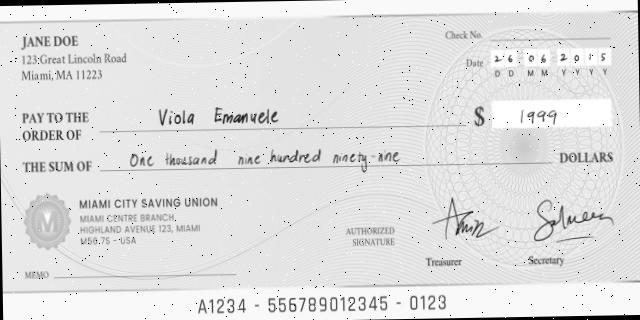 JANE DOE
123 Great Lincoln Road
Miami, MA 11223
Check No.
Date 26 06 2015
D D M M Y Y Y Y
PAY TO THE
ORDER OF Viola Emanuele
$ 1999
THE SUM OF One thousand nine hundred ninety-nine DOLLARS
M
MIAMI CITY SAVING UNION
MIAMI CENTRE BRANCH,
HIGHLAND AVENUE 123, MIAMI
M50.75 - USA
AUTHORIZED
SIGNATURE
Amin
Salmeen
Treasurer
Secretary
MEMO
A1234 - 556789012345 - 0123